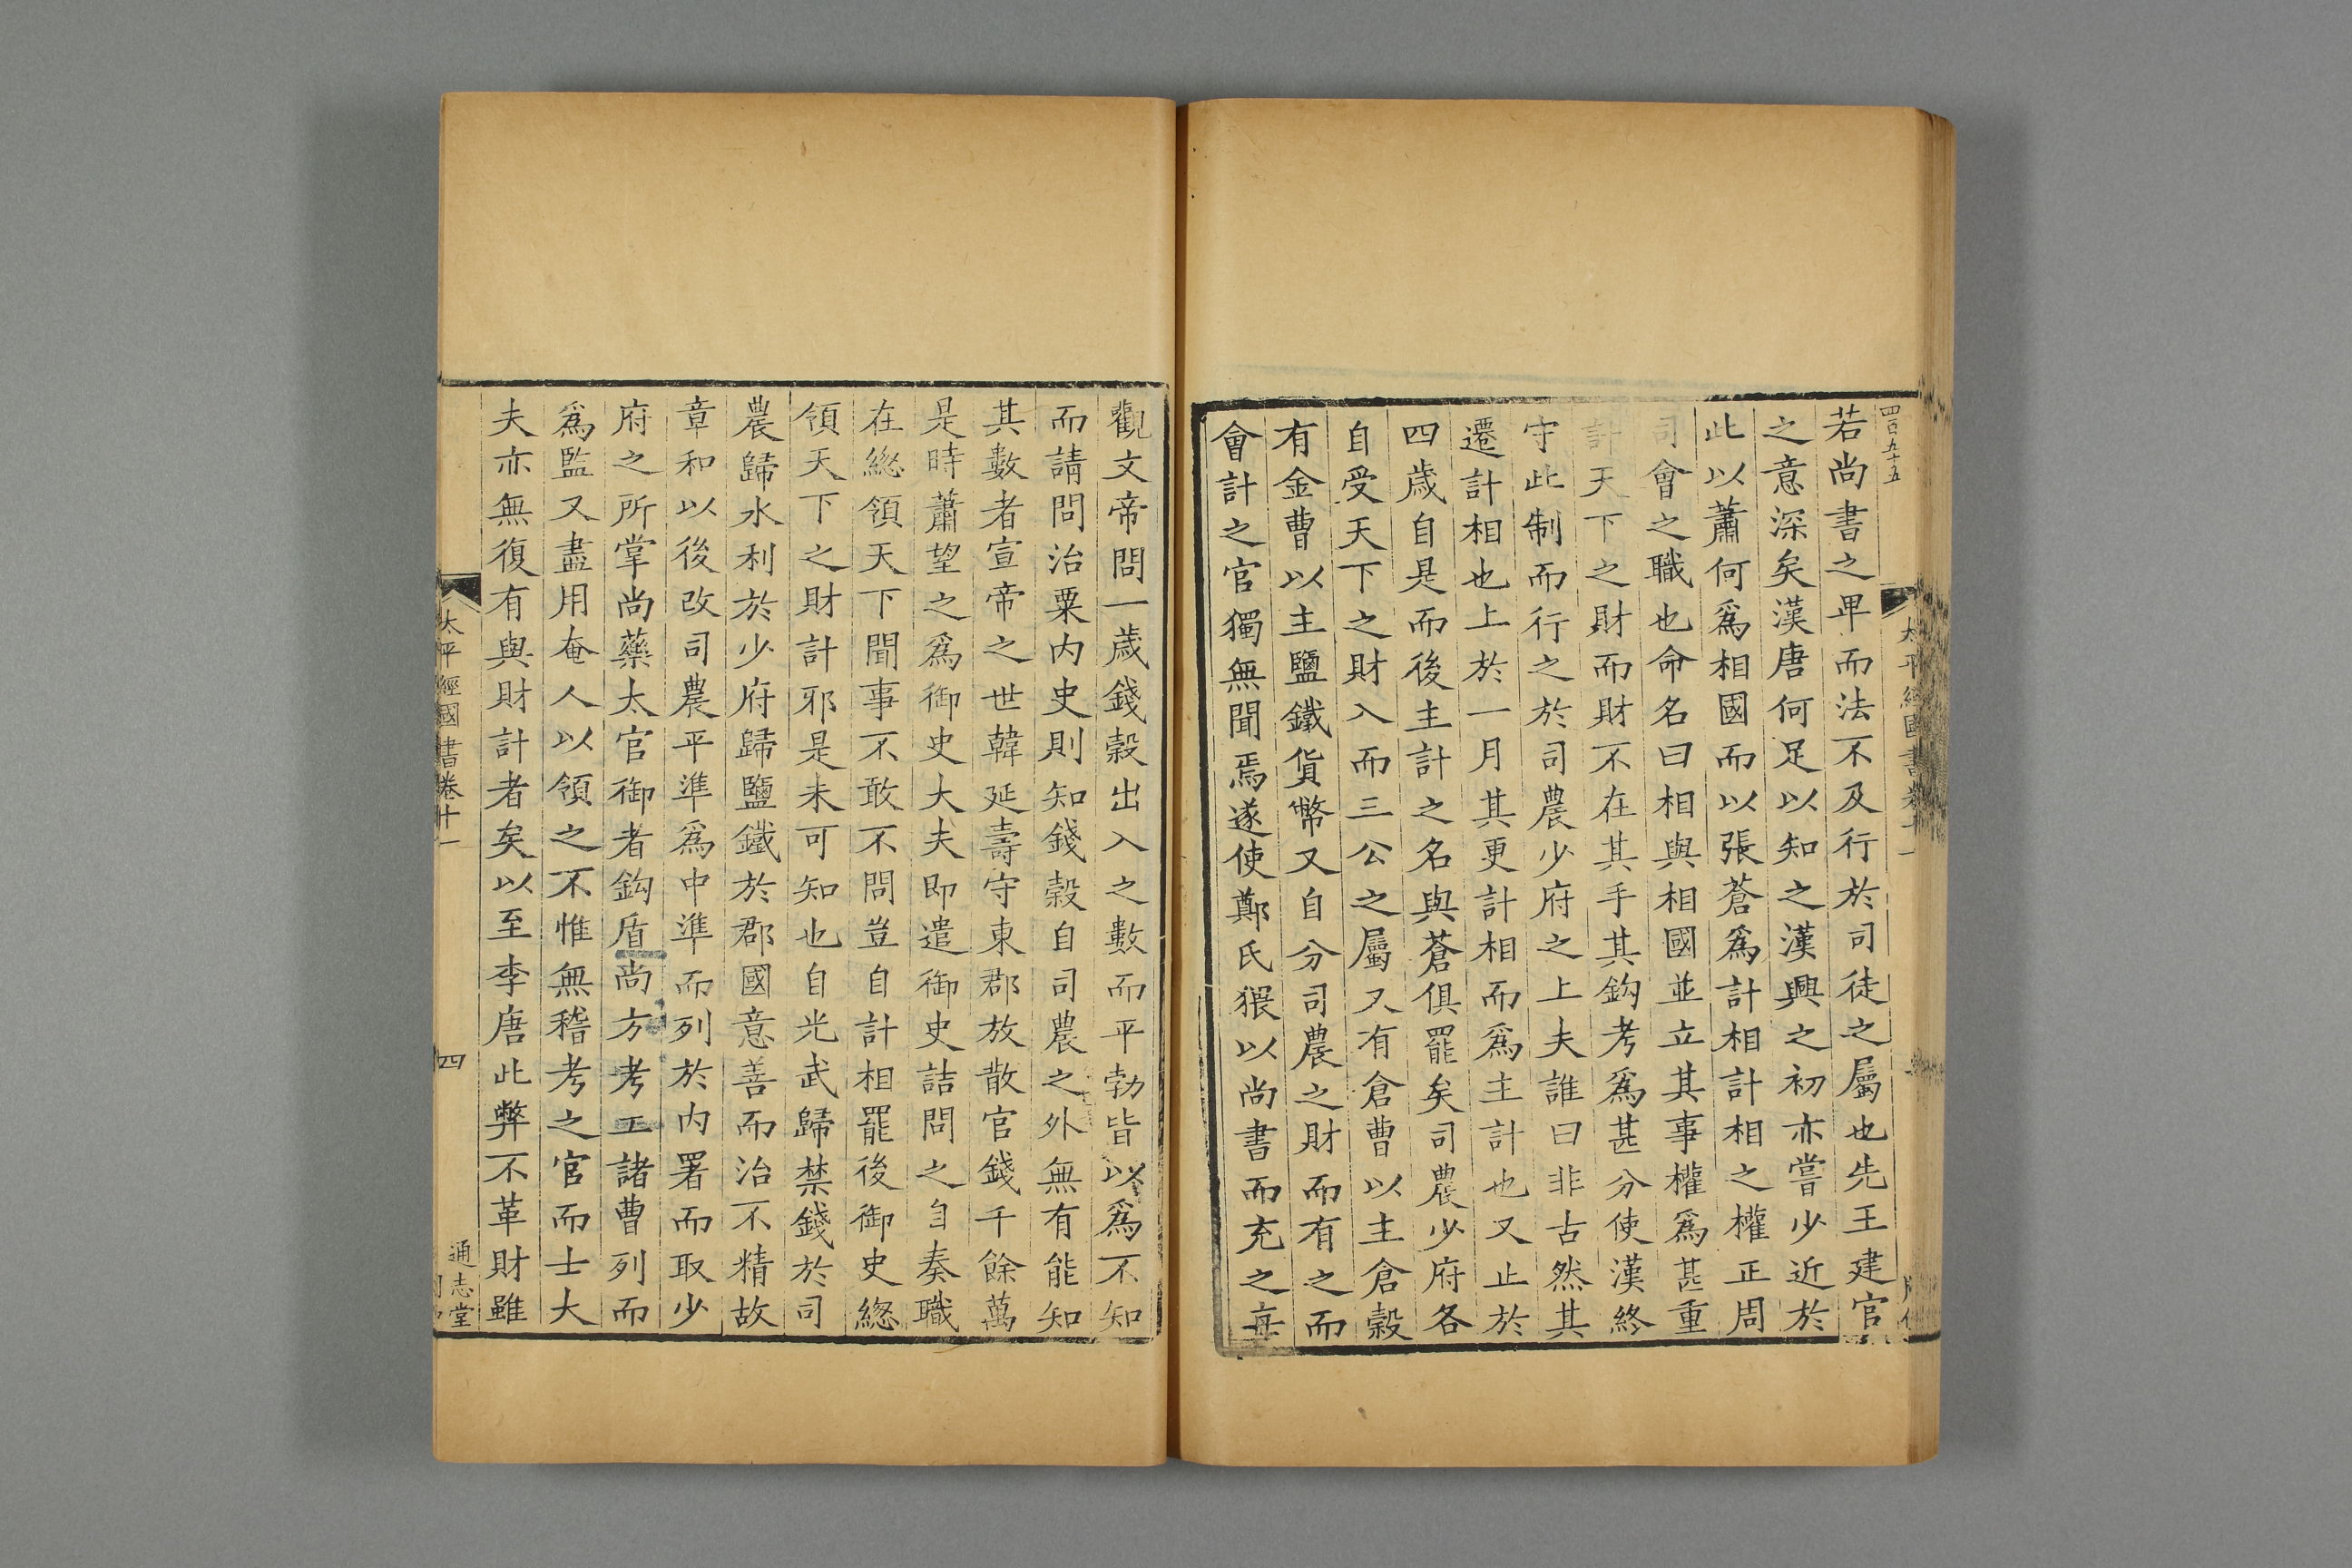 四百九十五
若尚書之卑而法不及行於司徒之屬也先王建官
之意深矣漢唐何足以知之漢興之初亦嘗少近於
此以蕭何爲相國而以張蒼爲計相計相之權正周
司會之職也命名曰相與相國並立其事權爲甚重
計天下之財而財不在其手其鈎考爲甚分使漢終
守此制而行之於司農少府之上夫誰曰非古然其
遷計相也上於一月其更計相而爲主計也又止於
四歲自是而後主計之名與蒼俱罷矣司農少府各
自受天下之財入而三公之屬又有倉曹以主倉穀
有金曹以主鹽鐵貨幣又自分司農之財而有之而
會計之官獨無聞焉遂使鄭氏猥以尚書而充之毎
觀文帝問一歲錢穀出入之數而平勃皆以爲不知
而請問治粟内史則知錢穀自司農之外無有能知
其數者宣帝之世韓延壽守東郡放散官錢千餘萬
是時蕭望之爲御史大夫即遣御史詰問之自奏職
在總領天下聞事不敢不問豈自計相罷後御史總
領天下之財計邪是未可知也自光武歸禁錢於司
農歸水利於少府歸鹽鐵於郡國意善而治不精故
章和以後改司農平準爲中準而列於内署而取少
府之所掌尚藥太官御者鈎盾尚方考工諸曹列而
爲監又盡用奄人以領之不惟無稽考之官而士大
夫亦無復有與財計者矣以至李唐此弊不革財雖
太平經國書卷十一
四
通志堂